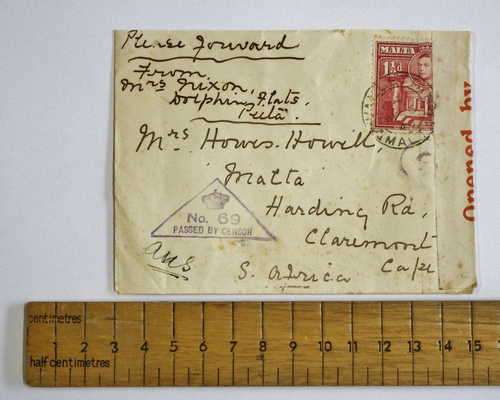 Please forward
From.
Mrs Nixon,
Dolphin Flats,
Pieta.
MALTA
1½d
Opened by
Mrs Howes-Howell,
Malta
Harding Rd,
Claremont
Cape
S. Africa
No. 69
PASSED BY CENSOR
Ans
centimetres
1 2 3 4 5 6 7 8 9 10 11 12 13 14 15
half centimetres